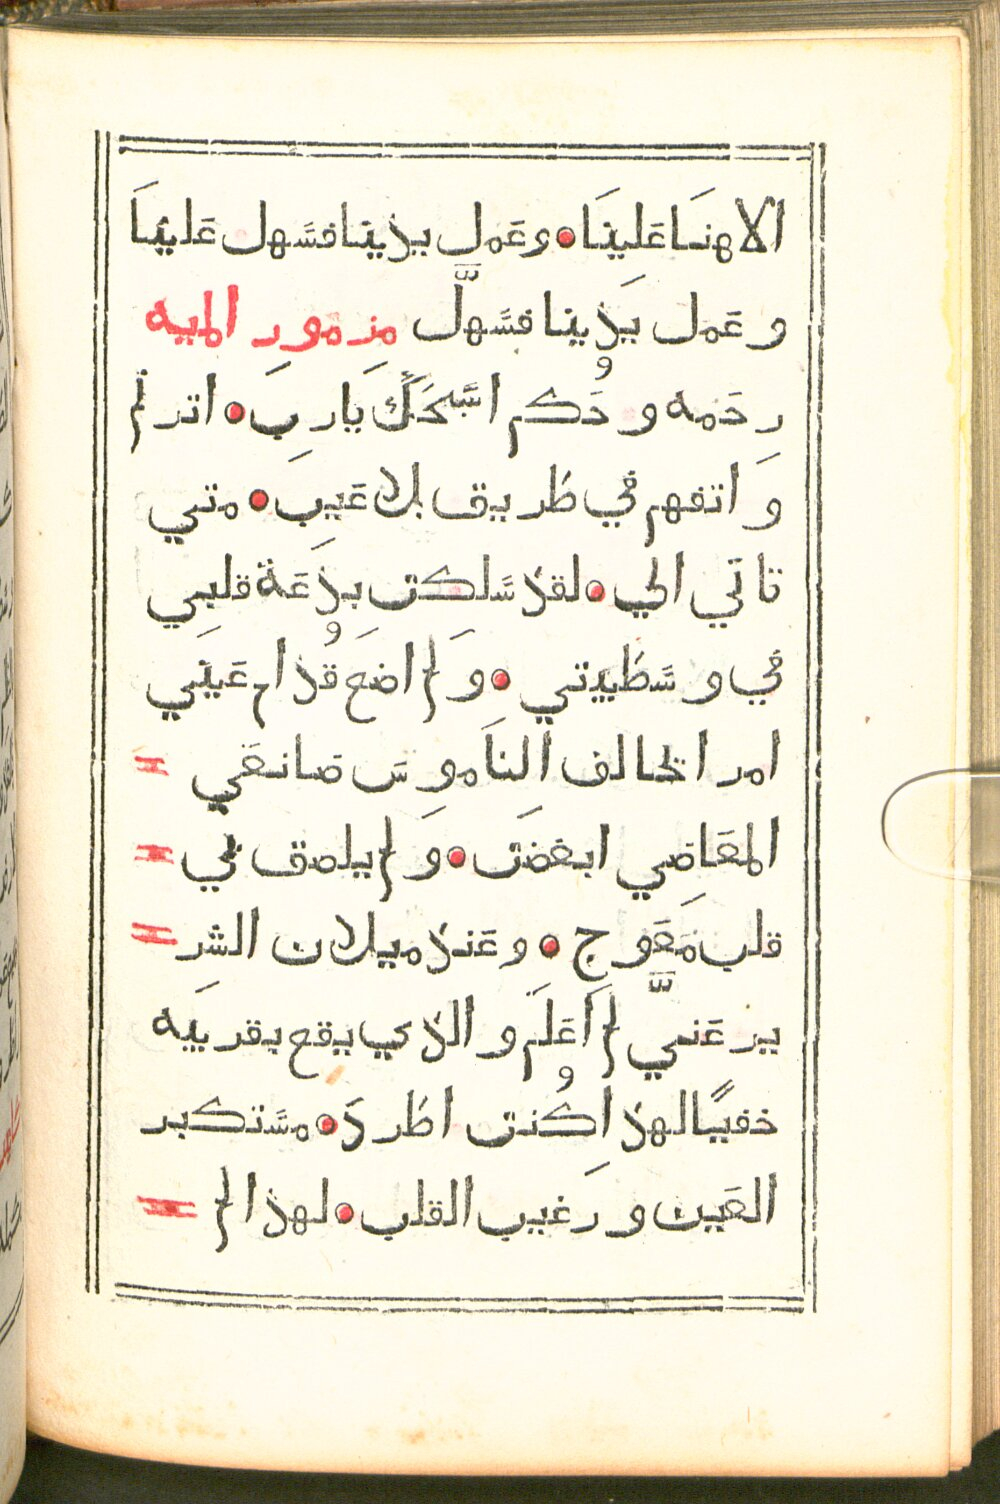 الاهنا علينا • وعمل يدينا فسهل علينا
وعمل يدينا فسهل مزمور الميه
رحمه و حكم اسبحك يا رب • اترلم
و اتفهم في طريق بلا عيب • متي
تاتي الي • لقد سلكت بدعة قلبي
في وسط بيتي • و لم اضع قدام عيني
امر ايخالف الناموس صانعي
المعاصي ابغضت • و لم يلصق بي
قلب معوج • وعند ميلان الشر
يز عني لم اعلم والذي يقع بقريبه
خفيا لهذا كنت اطرد • مستكبر
العين و رغيب القلب • لهذا لم